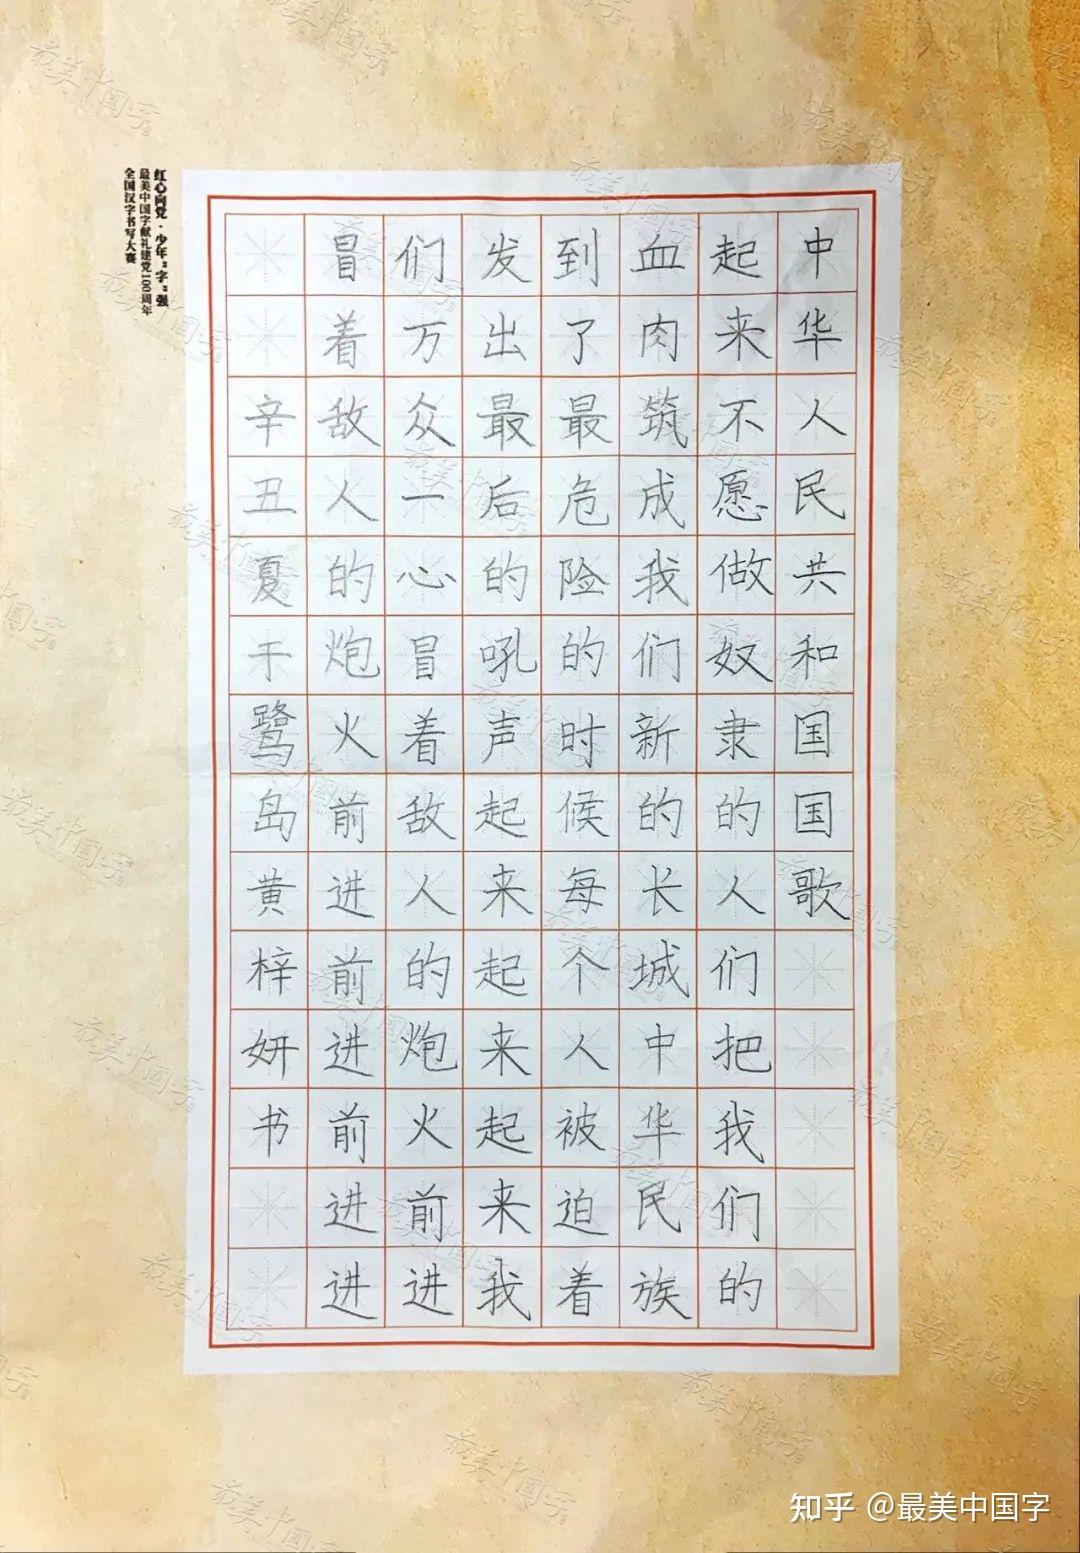 红心向党·少年“字”强
最美中国字献礼建党100周年
全国汉字书写大赛
中华人民共和国国歌
起来不愿做奴隶的人们把我们的
血肉筑成我们新的长城中华民族
到了最危险的时候每个人被迫着
发出最后的吼声起来起来起来我
们万众一心冒着敌人的炮火前进
冒着敌人的炮火前进前进前进进
辛丑夏于鹭岛黄梓妍书
知乎 @最美中国字